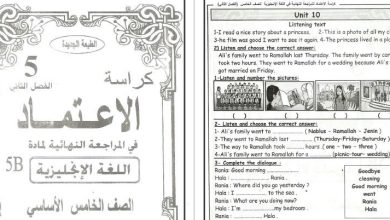 الطبعة الجديدة
5
الفصل الثاني
كراسة
الاعتماد
في المراجعة النهائية لمادة
اللغة الإنجليزية 5B
الصف الخامس الأساسي
Unit 10
Listening text
1-I read a nice story about a princess. 2-This is a photo of all my
3-he film was good and I want to see it again. 4-The princess lived in a
2) Listen and choose the correct answer:
Ali's family went to Ramallah last Thursday. The family went by car
took two hours. They went to Ramallah for a wedding because Ali's
got married on Friday.
1-Listen and number the pictures:
2- Listen and choose the correct answer:
1- Ali's family went to ............. ( Nablus - Ramallah - Jenin )
2- They went to Ramallah last .......... (Thursday-Friday-Saturday)
3- The way to Ramallah took ..... hours ( one - two - three )
4- Ali's family went to Ramallah for a ........ (picnic-tour- wedding)
3- Complete the dialogue
Rania: Good morning
Hala : ............ Rania
Rania: Where did you go yesterday ?
Hala : I ........... to the sea..
Rania: What are you doing now?
Hala : I'm ............my bedroom
Rania: .............. Hala
Hala : .............. Rania
Goodbye
cleaning
Good
morning
went